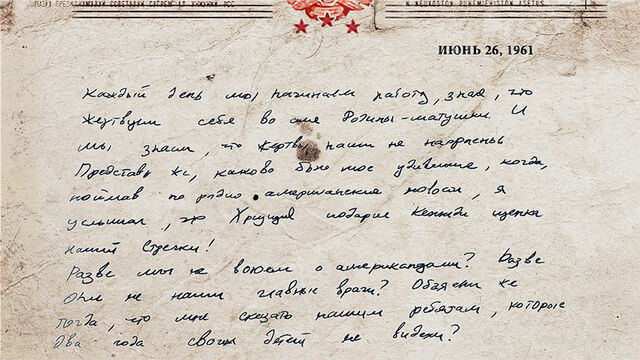 ИЮНЬ 26, 1961
Каждый день мы начинаем работу, зная, что
жертвуем себя во имя Родины-матушки. И
мы знаем, что жертвы наши не напрасны.
Представь же, каково было мое удивление, когда,
поймав по радио американские новости, я
услышал, что Хрущев подарил Кеннеди щенка
нашей Стрелки!
Разве мы не воюем с американцами? Разве
они не наши главные враги? Объясни же
тогда, что мне сказать нашим ребятам, которые
два года своих детей не видели?